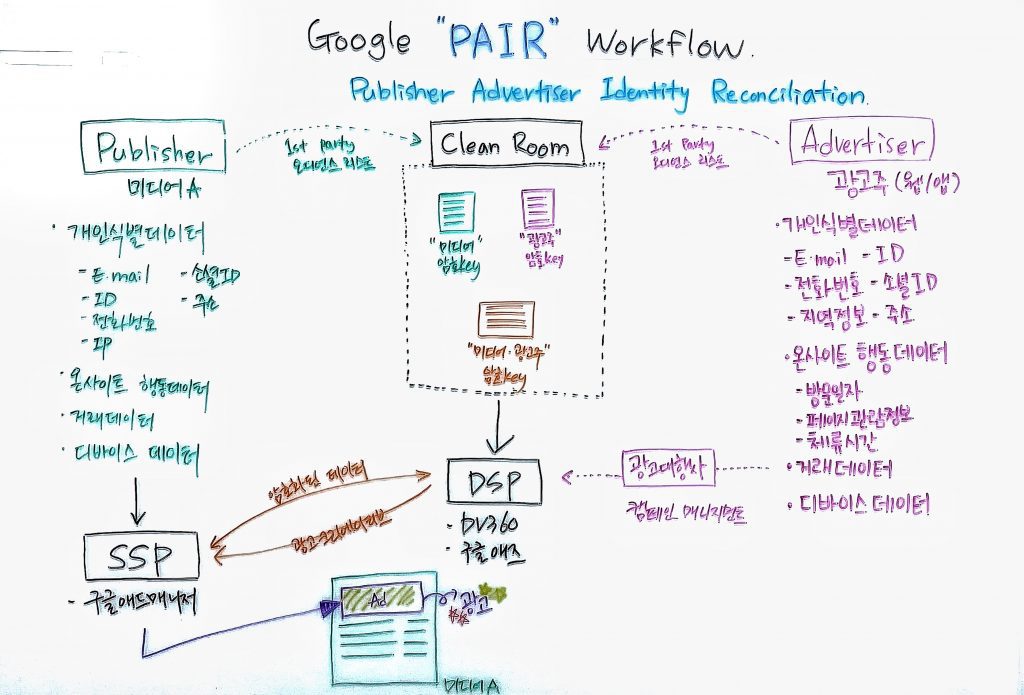 Google "PAIR" Workflow.
Publisher Advertiser Identity Reconciliation.
Publisher
미디어 A
· 개인식별데이터
- E.mail - 소셜ID
- ID - 주소
- 전화번호
- IP
· 온사이트 행동데이터
· 거래데이터
· 디바이스 데이터
SSP
- 구글애드매니저
1st party
오디언스 리스트
Clean Room
"미디어"
암호key
"광고주"
암호key
"미디어·광고주"
암호key
DSP
- DV360
- 구글애즈
암호화된 데이터
광고크리에이티브
1st Party
오디언스 리스트
Advertiser
광고주 (웹/앱)
· 개인식별데이터
- E.mail - ID
- 전화번호 - 소셜ID
- 지역정보 - 주소
· 온사이트 행동데이터
- 방문일자
- 페이지관람정보
- 체류시간
· 거래데이터
· 디바이스데이터
광고대행사
캠페인 매니지먼트
Ad
광고
미디어 A